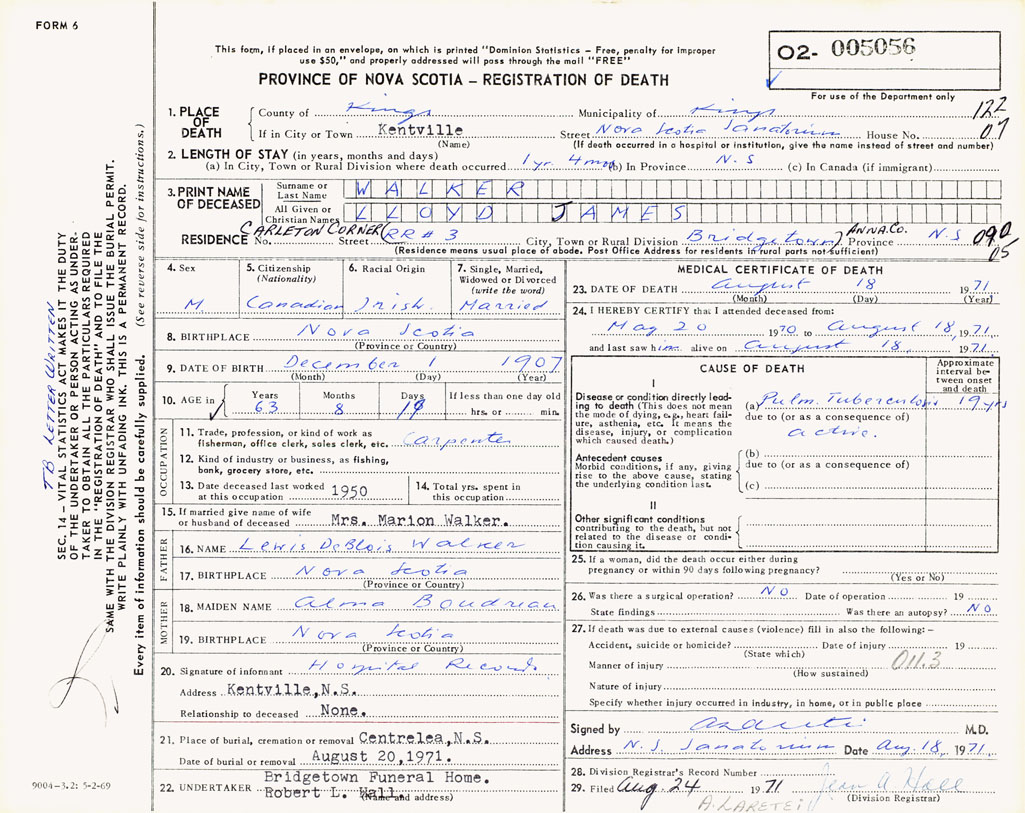 FORM 6
This form, if placed in an envelope, on which is printed "Dominion Statistics – Free, penalty for improper
use $50," and properly addressed will pass through the mail "FREE"
PROVINCE OF NOVA SCOTIA – REGISTRATION OF DEATH
O2- 005056
For use of the Department only
1. PLACE OF DEATH
County of Kings Municipality of Kings 122
If in City or Town Kentville Street Nova Scotia Sanatorium House No. 07
(Name) (If death occurred in a hospital or institution, give the name instead of street and number)
2. LENGTH OF STAY (in years, months and days)
(a) In City, Town or Rural Division where death occurred 1 yr. 4 mos (b) In Province N.S (c) In Canada (if immigrant)
3. PRINT NAME OF DECEASED
Surname or Last Name WALKER
All Given or Christian Names LLOYD JAMES
RESIDENCE No. CARLETON CORNER Street (RR#3 City, Town or Rural Division Bridgetown) ANNA.CO. Province N.S 090
05
(Residence means usual place of abode. Post Office Address for residents in rural parts not sufficient)
4. Sex
M.
5. Citizenship
(Nationality)
Canadian
6. Racial Origin
Irish.
7. Single, Married,
Widowed or Divorced
(write the word)
Married
8. BIRTHPLACE Nova Scotia
(Province or Country)
9. DATE OF BIRTH December 1 1907
(Month) (Day) (Year)
10. AGE in
Years 63
Months 8
Days
If less than one day old
hrs. or min.
OCCUPATION
11. Trade, profession, or kind of work as
fisherman, office clerk, sales clerk, etc. Carpenter
12. Kind of industry or business, as fishing,
bank, grocery store, etc.
13. Date deceased last worked
at this occupation 1950
14. Total yrs. spent in
this occupation
15. If married give name of wife
or husband of deceased Mrs. Marion Walker.
FATHER
16. NAME Lewis DeBlois Walker
17. BIRTHPLACE Nova Scotia
(Province or Country)
MOTHER
18. MAIDEN NAME Alma Boudreau
19. BIRTHPLACE Nova Scotia
(Province or Country)
20. Signature of informant Hospital Records
Address Kentville, N.S.
Relationship to deceased None.
21. Place of burial, cremation or removal Centrelea, N.S.
Date of burial or removal August 20, 1971.
Bridgetown Funeral Home.
22. UNDERTAKER Robert L. Hall
(Name and address)
MEDICAL CERTIFICATE OF DEATH
23. DATE OF DEATH August 18 1971
(Month) (Day) (Year)
24. I HEREBY CERTIFY that I attended deceased from:
May 20 1970 to August 18, 1971
and last saw him alive on August 18, 1971
CAUSE OF DEATH
Approximate
interval be-
tween onset
and death
I
Disease or condition directly lead-
ing to death (This does not mean
the mode of dying, e.g., heart fail-
ure, asthenia, etc. It means the
disease, injury, or complication
which caused death.)
(a) Pulm. Tuberculosis 19 yrs
due to (or as a consequence of)
active.
Antecedent causes
Morbid conditions, if any, giving
rise to the above cause, stating
the underlying condition last.
(b)
due to (or as a consequence of)
(c)
II
Other significant conditions
contributing to the death, but not
related to the disease or condi-
tion causing it.
25. If a woman, did the death occur either during
pregnancy or within 90 days following pregnancy?
(Yes or No)
26. Was there a surgical operation? NO Date of operation 19
State findings Was there an autopsy? NO
27. If death was due to external causes (violence) fill in also the following:–
Accident, suicide or homicide? Date of injury 19
(State which)
Manner of injury 011.3
(How sustained)
Nature of injury
Specify whether injury occurred in industry, in home, or in public place
Signed by M.D.
Address N.S. Sanatorium Date Aug. 18, 1971.
28. Division Registrar's Record Number
29. Filed Aug. 24 1971 Jean A Hall
(Division Registrar)
A. LARETEI
TB LETTER WRITTEN
SEC. 14 – VITAL STATISTICS ACT MAKES IT THE DUTY
OF THE UNDERTAKER OR PERSON ACTING AS UNDER-
TAKER TO OBTAIN ALL THE PARTICULARS REQUIRED
IN THE "REGISTRATION OF DEATH" AND TO FILE THE
SAME WITH THE DIVISION REGISTRAR WHO SHALL ISSUE THE BURIAL PERMIT.
WRITE PLAINLY WITH UNFADING INK. THIS IS A PERMANENT RECORD.
Every item of information should be carefully supplied. (See reverse side for instructions.)
9004-3.2: 5-2-69